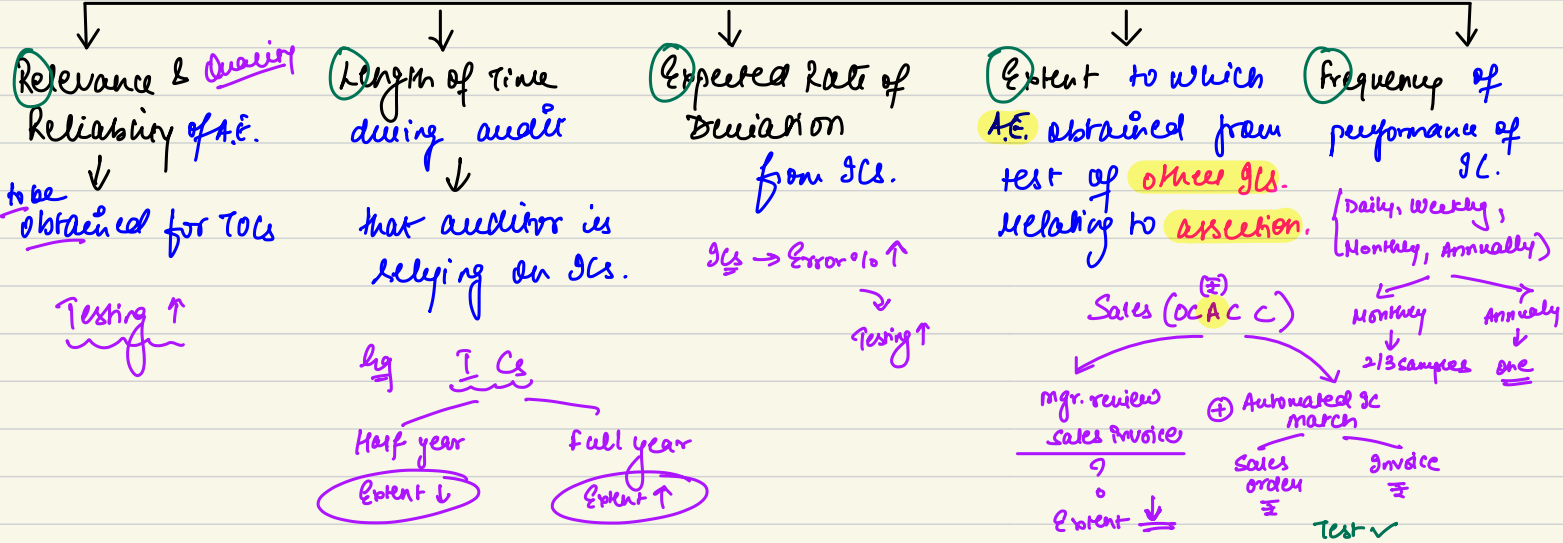 Relevance & Quality
Reliability of A.E.
to be
obtained for TOCs
Testing ↑
Length of Time
during audit
that auditor is
relying on ICs.
Eg I Cs
Half year
Full year
Extent ↓
Extent ↑
Expected Rate of
Deviation
from ICs.
ICs → Error % ↑
Testing ↑
Extent to which
A.E. obtained from
test of other ICs.
relating to assertion.
Sales (OCACC)
mgr. review
sales invoice
?
Extent ↓
+ Automated IC
match
Sales
order
Invoice
Test ✓
Frequency of
performance of
IC.
(Daily, Weekly,
Monthly, Annually)
Monthly
Annually
2/3 samples
one